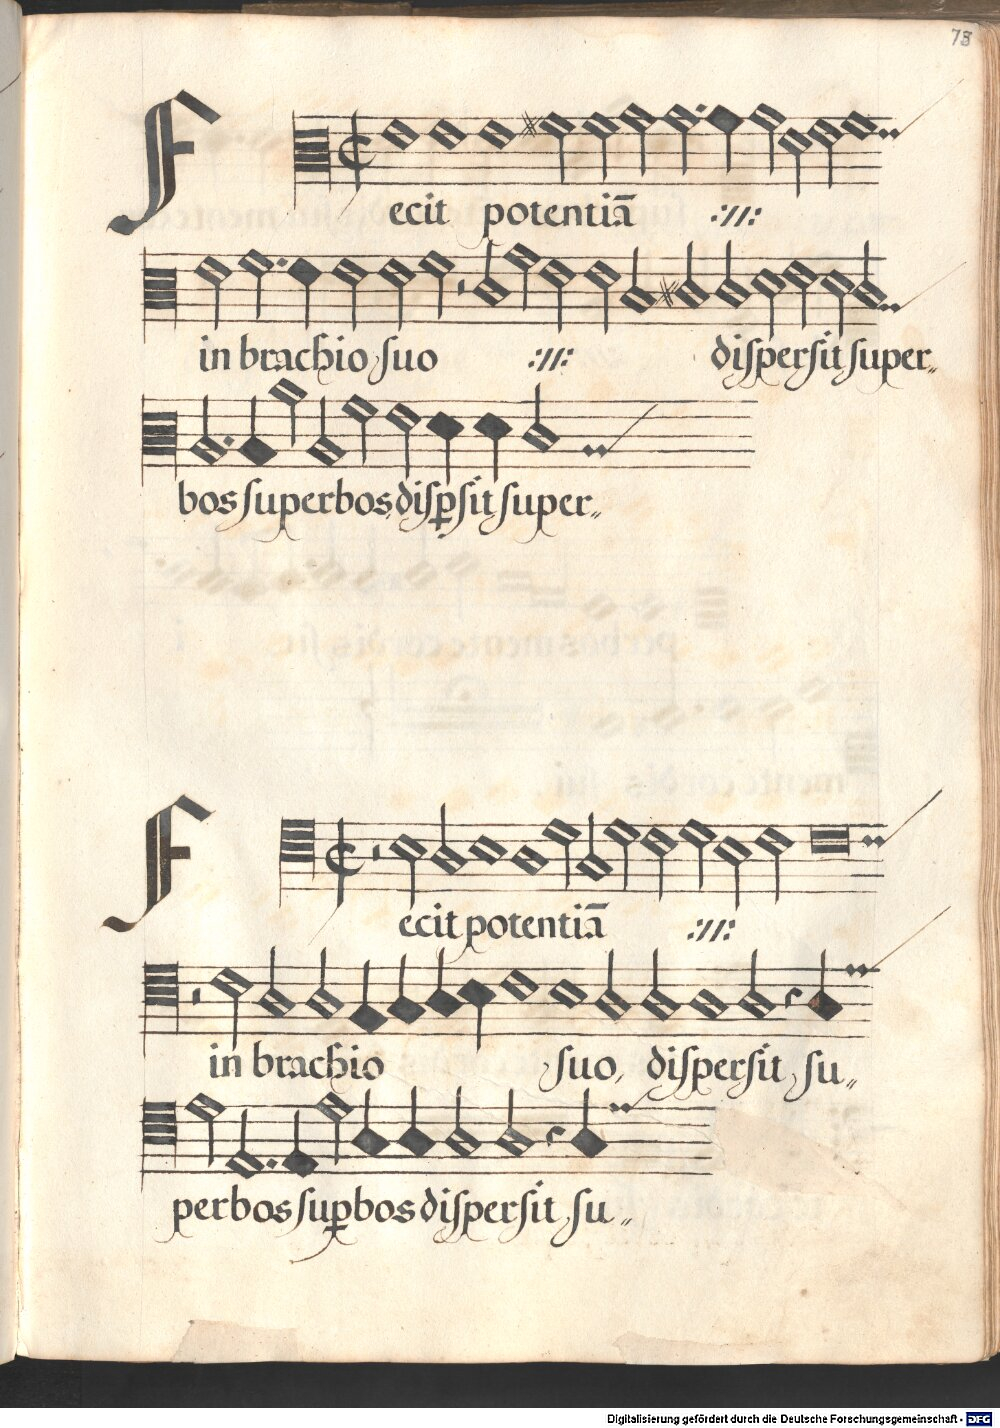 73
Fecit potentiā ://:
in brachio suo ://: dispersit super„
bos superbos disp̱sit super„
Fecit potentiā ://:
in brachio suo, dispersit su„
perbos sup̱bos dispersit su„
Digitalisierung gefördert durch die Deutsche Forschungsgemeinschaft - DFG